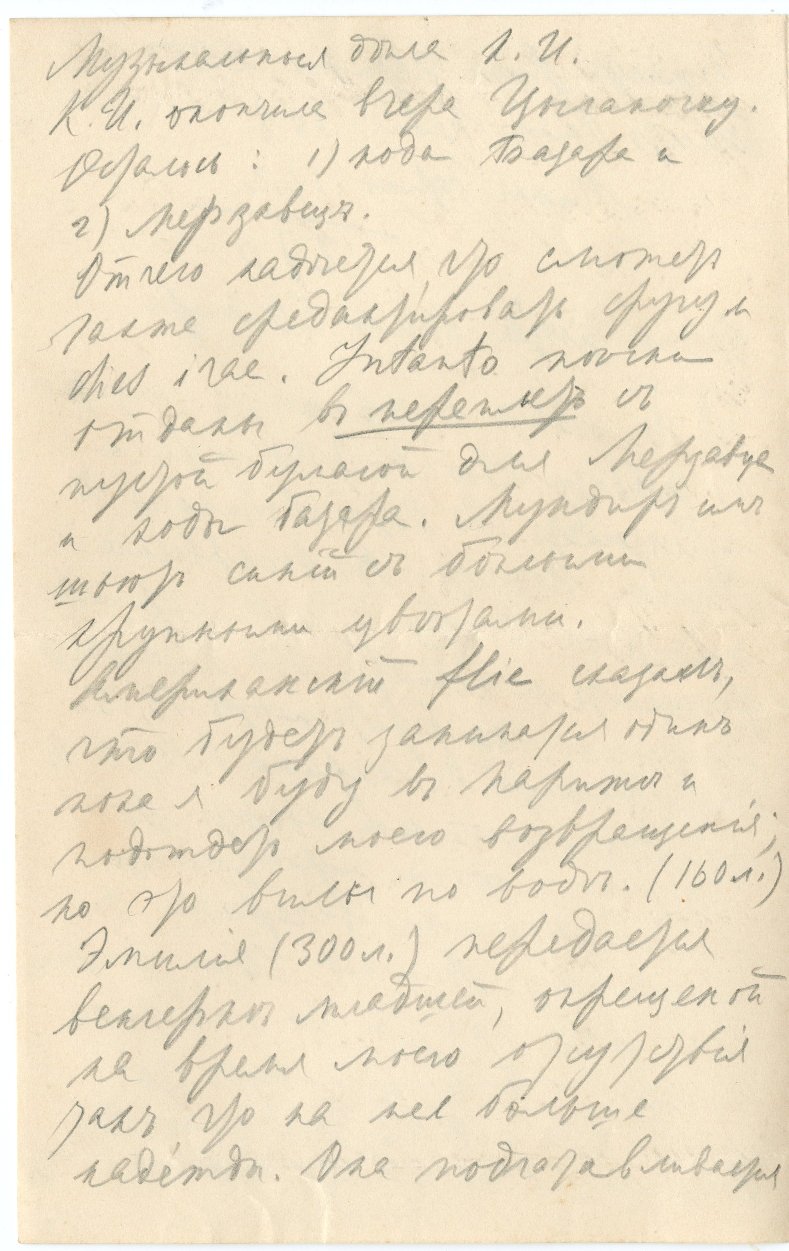 Музыкальныя дѣла К. И.
К. И. окончила вчера Цыганочку.
Осталось: 1) кода Базара и
2) Мерзавецъ.
Отчего надѣется, что сможетъ
также средактировать фугу и
dies irae. Intanto поиски
отданы въ переплетъ съ
пустой бумагой для Мерзавца
и коды Базара. Мундиръ имъ
штофъ синій съ большими
крупными цвѣтами.
Американскій flic сказалъ,
что будетъ заниматся одинъ
пока я буду въ Парижѣ и
подождетъ моего возвращенія;
но это вилы по водѣ. (160 л.)
Эмилія (300 л.) передается
венгеркѣ младшей, окрещеной
на время моего отсутствія
такъ что на нее больше
надежды. Она подготавливается